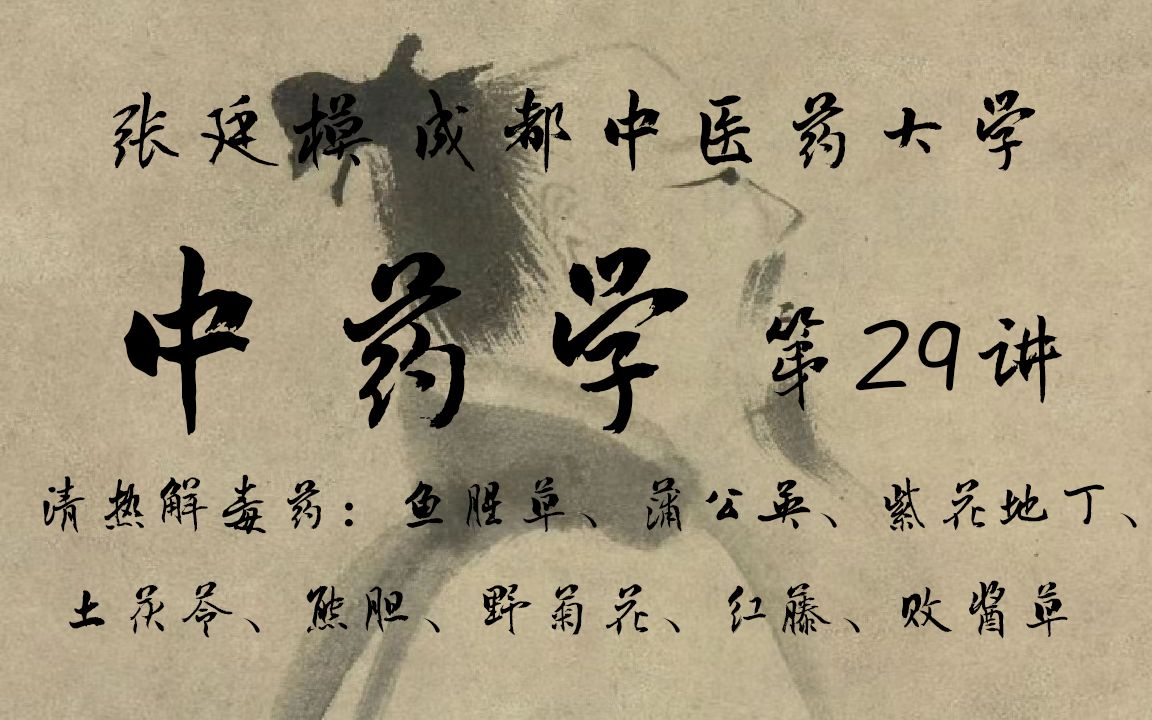 张廷模成都中医药大学
中药学 第29讲
清热解毒药：鱼腥草、蒲公英、紫花地丁、
土茯苓、熊胆、野菊花、红藤、败酱草